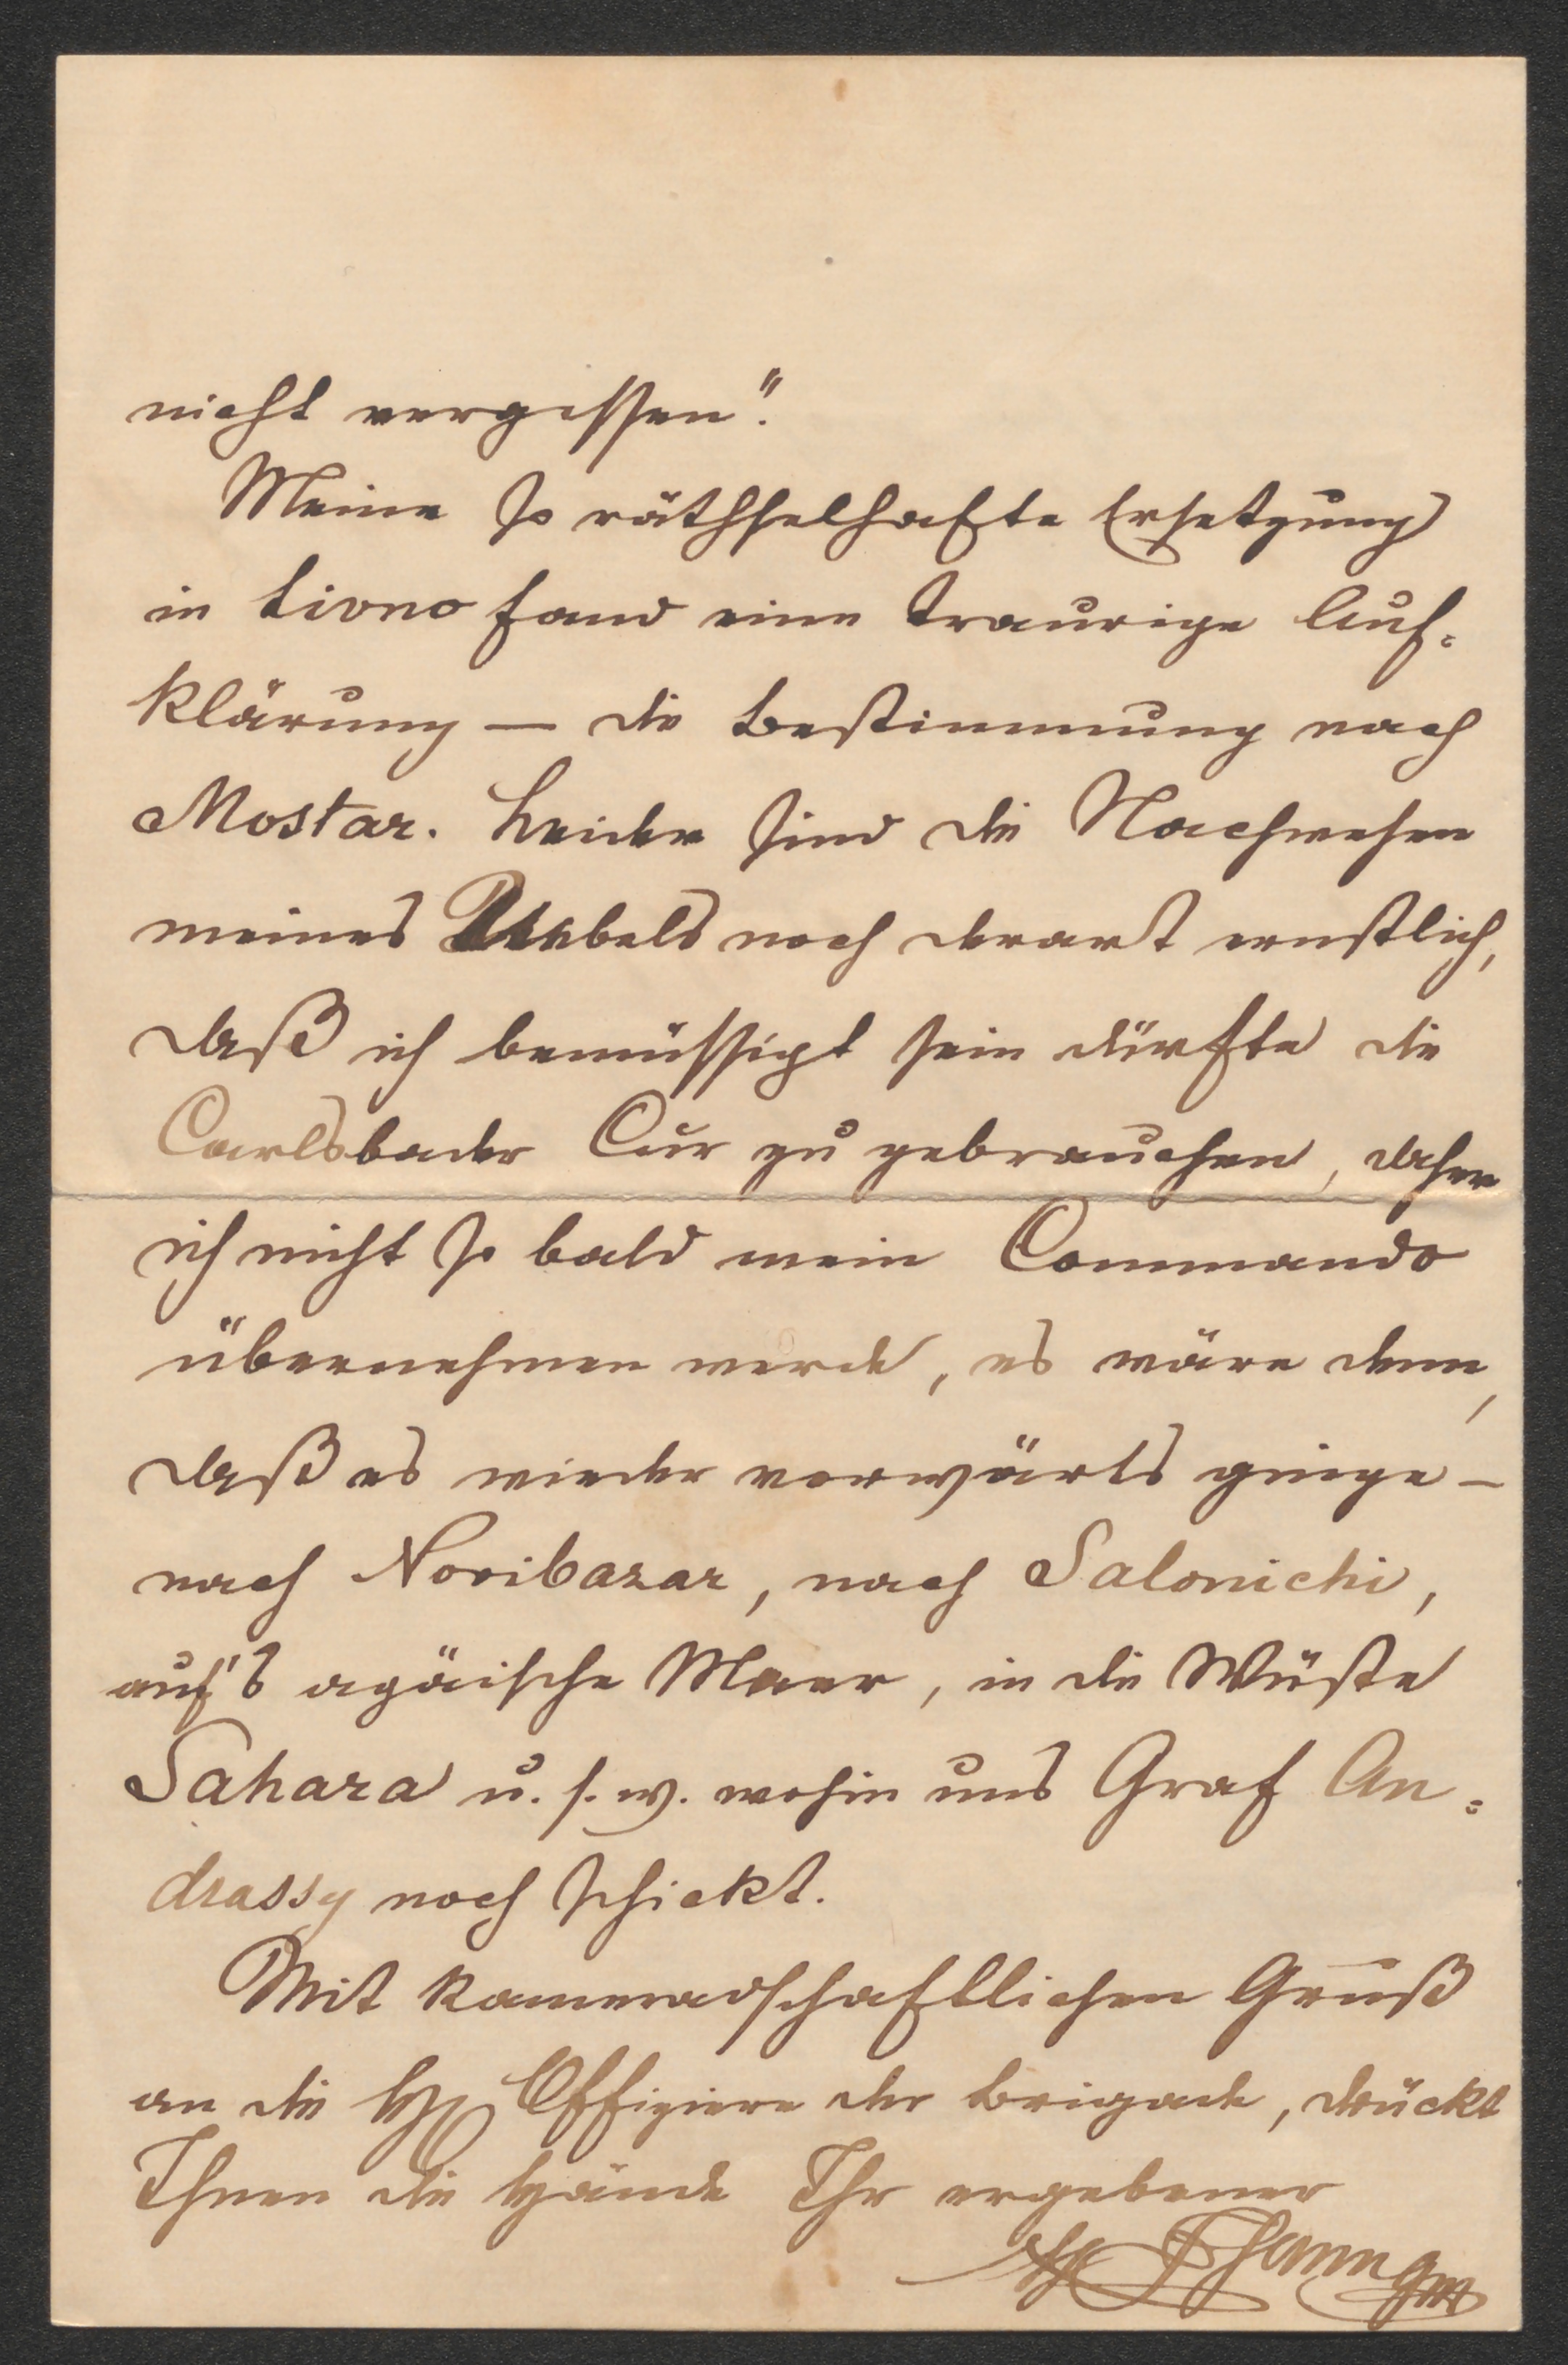 nicht vergessen".
Meine so räthselhafte Ersetzung
in Livno fand eine traurige Auf-
klärung — die Bestimmung nach
Mostar. Leider sind die Nachwehen
meines Uebels noch derart ernstlich,
daß ich bemüssigt sein dürfte die
Carlsbader Cur zu gebrauchen, daher
ich nicht so bald mein Commando
übernehmen werde, es wäre denn,
daß es wieder vorwärts ginge —
nach Novibazar, nach Salonichi,
auf's agäische Meer, in die Wüste
Sahara u. s. w. wohin uns Graf An-
drassy noch schickt.
Mit kameradschaftlichen Gruß
an die HH Offiziere der Brigade, drückt
Ihnen die Hände Ihr ergebener